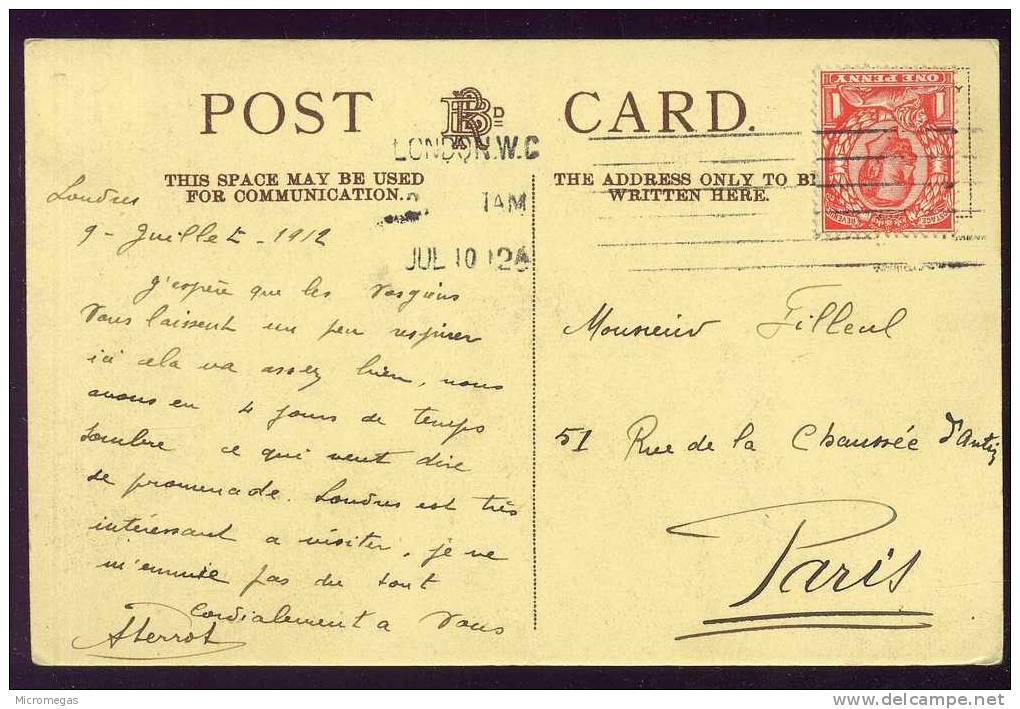 POST CARD.
LONDON.W.C
THIS SPACE MAY BE USED
FOR COMMUNICATION.
1AM
JUL 10 12
THE ADDRESS ONLY TO BE
WRITTEN HERE.
ONE PENNY
1 1
POSTAGE REVENUE
Londres
9 - Juillet - 1912
J'espère que les
Vous laissent un peu respirer
ici cela va assez bien, nous
avons eu 4 jours de temps
sombre ce qui veut dire
de promenade. Londres est très
intéressant a visiter, je ne
m'ennuie pas du tout
Cordialement a Vous
ATerrot
Monsieur Filleul
51 Rue de la Chaussée d'Antin
Paris
Micromegas
delcampe.net